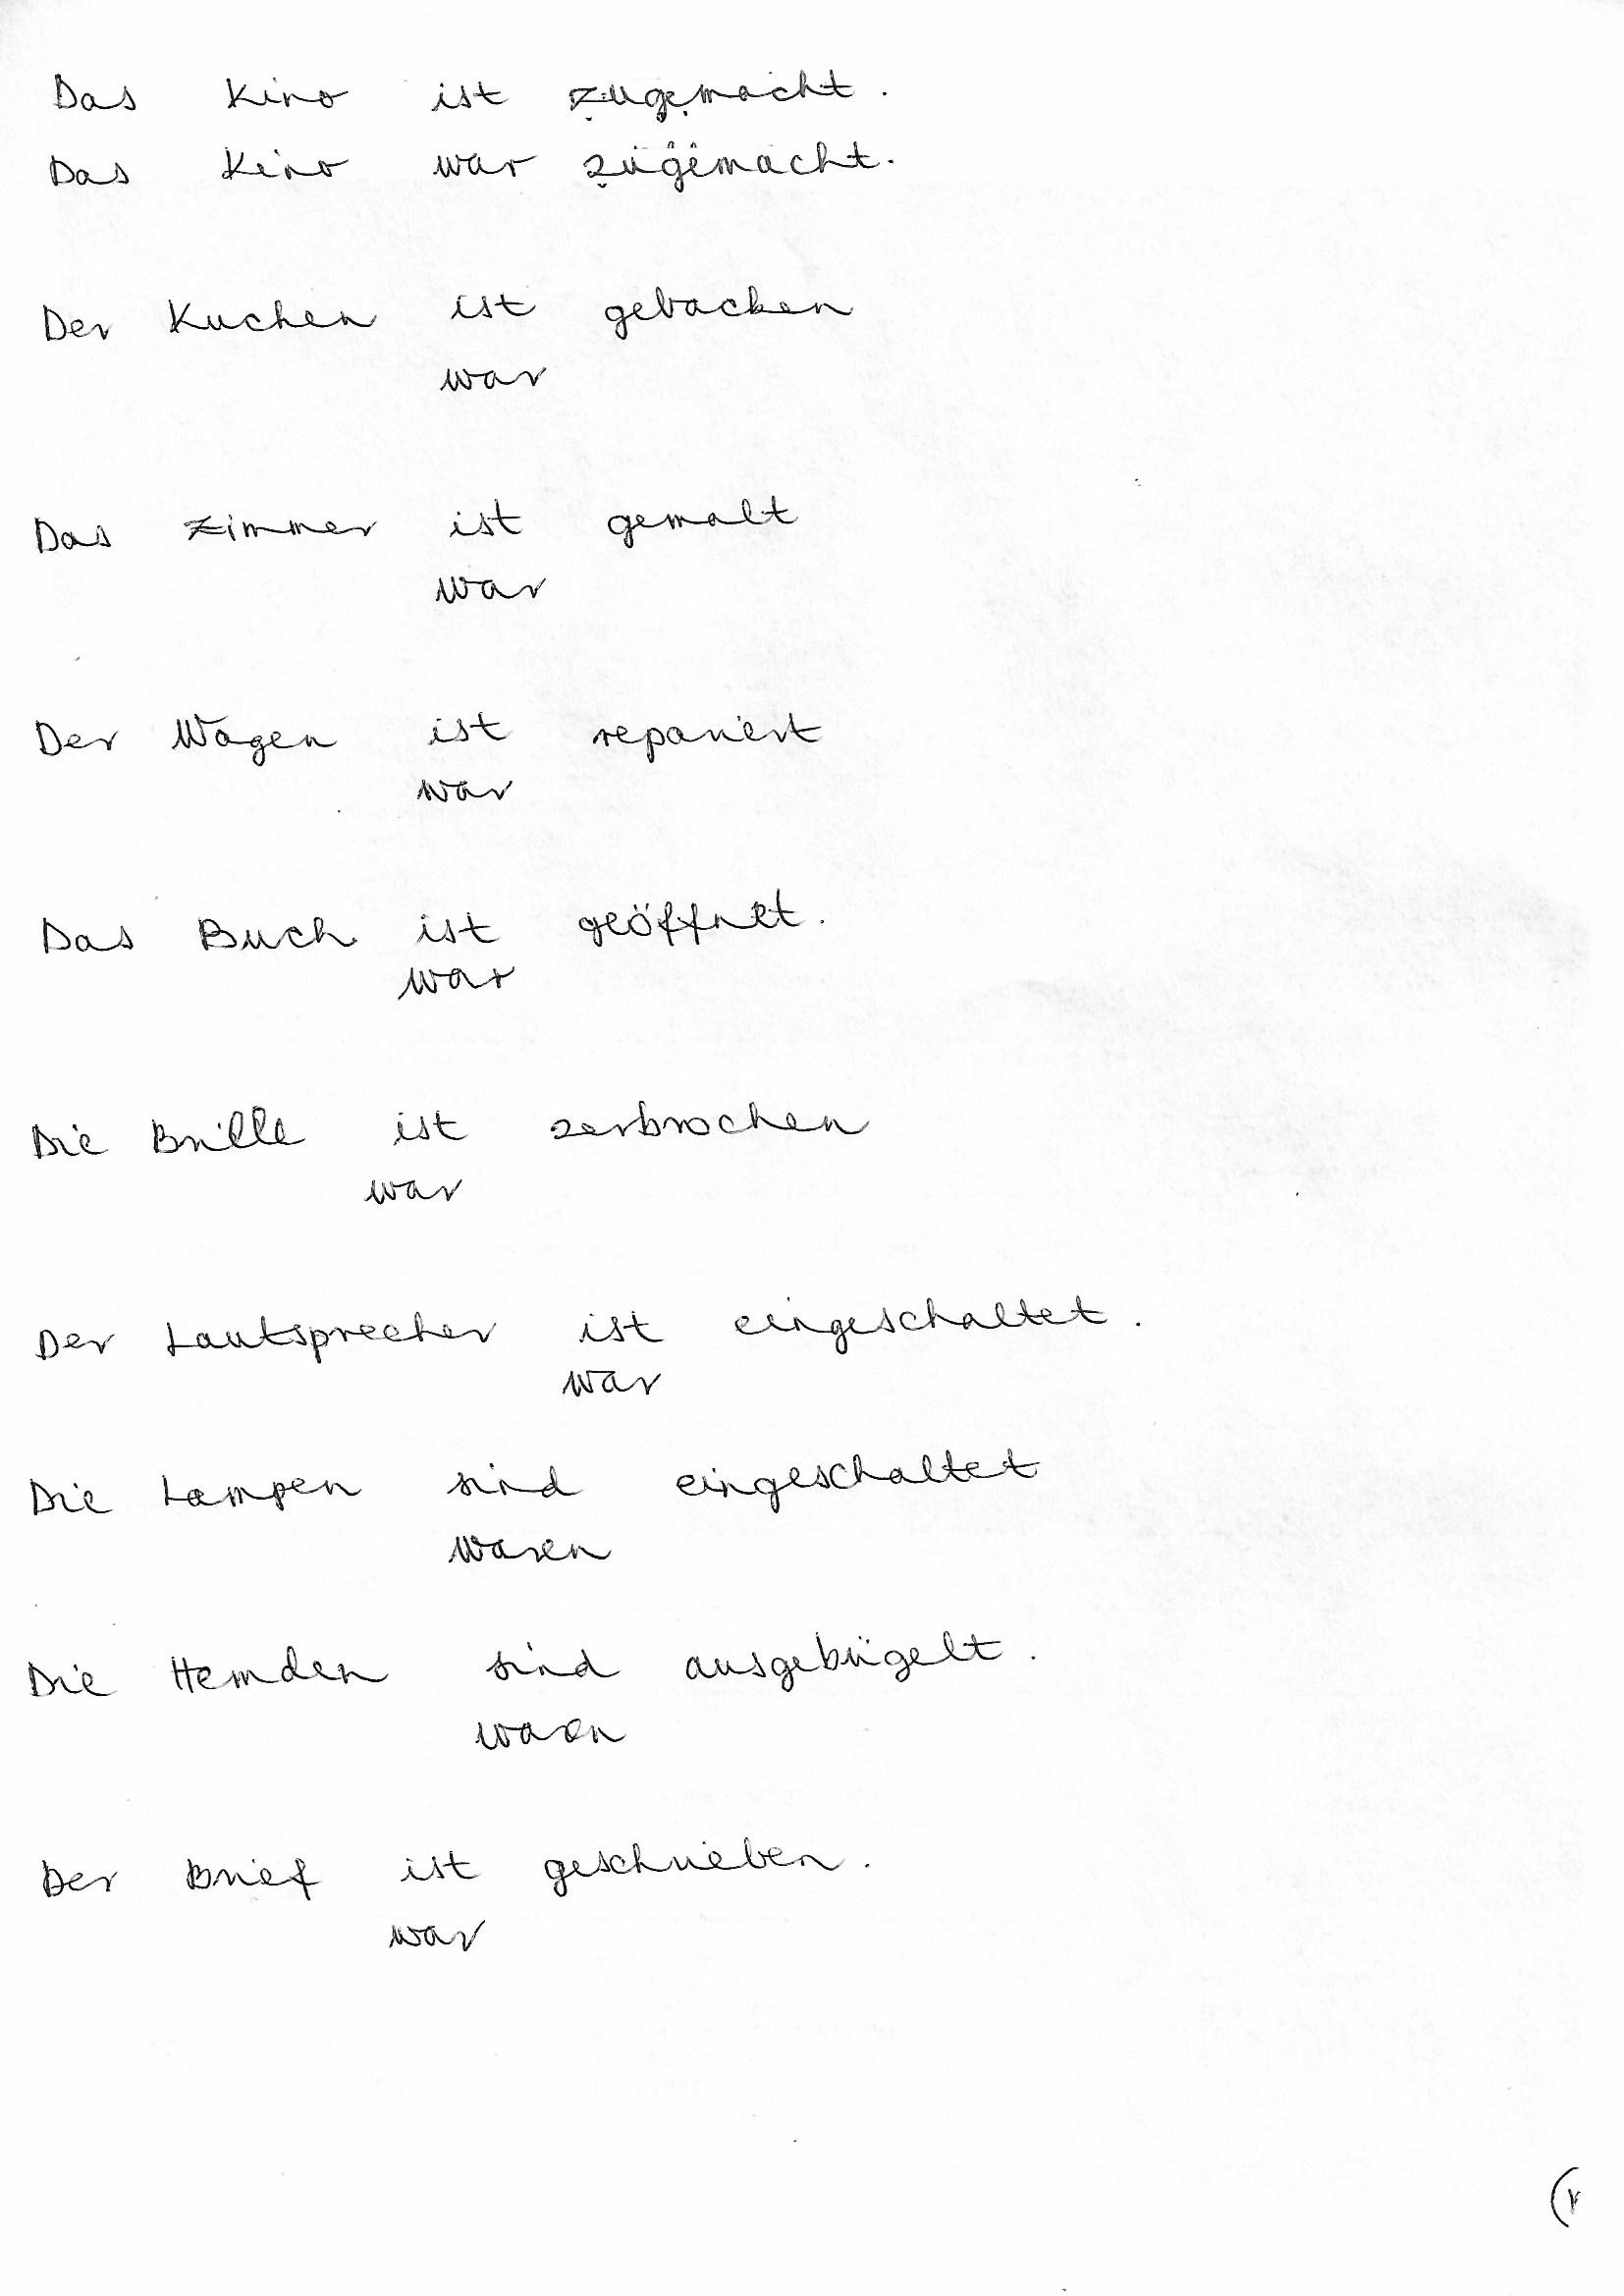 Das Kino ist zugemacht.
Das Kino war zugemacht.
Der Kuchen ist gebacken
war
Das Zimmer ist gemalt
war
Der Wagen ist repariert
war
Das Buch ist geöffnet.
war
Die Brille ist zerbrochen
war
Der Lautsprecher ist eingeschaltet.
war
Die Lampen sind eingeschaltet
waren
Die Hemden sind ausgebügelt.
waren
Der Brief ist geschrieben.
war